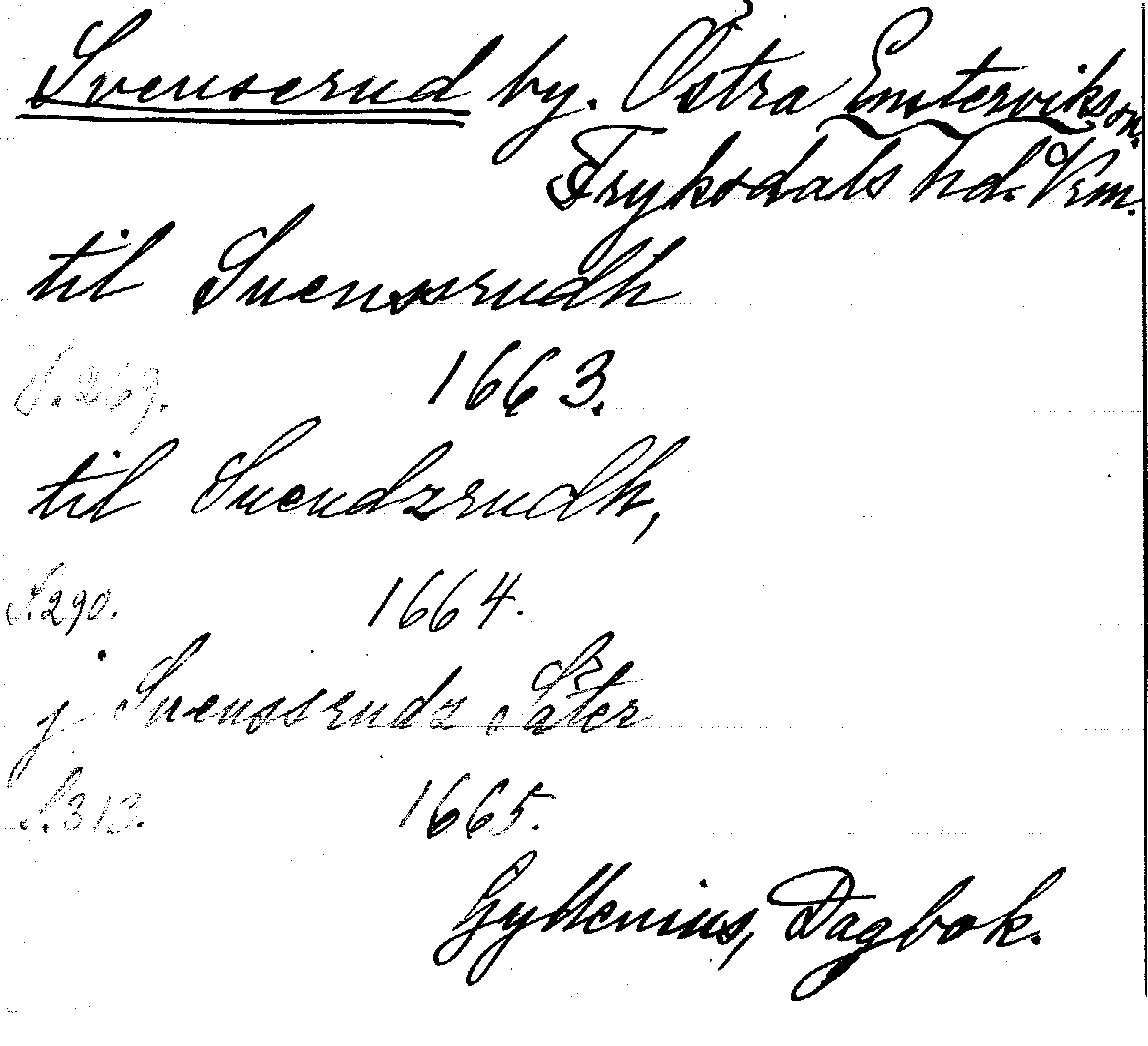 Svenserud by. Östra Emterviks sn.
Fryksdals hd. Vrm.
til Suensserudh
S. 269. 1663.
til Suendzrudh,
S. 290. 1664.
j Suenssrudz Säter
S. 313. 1665.
Gyllenius, Dagbok.